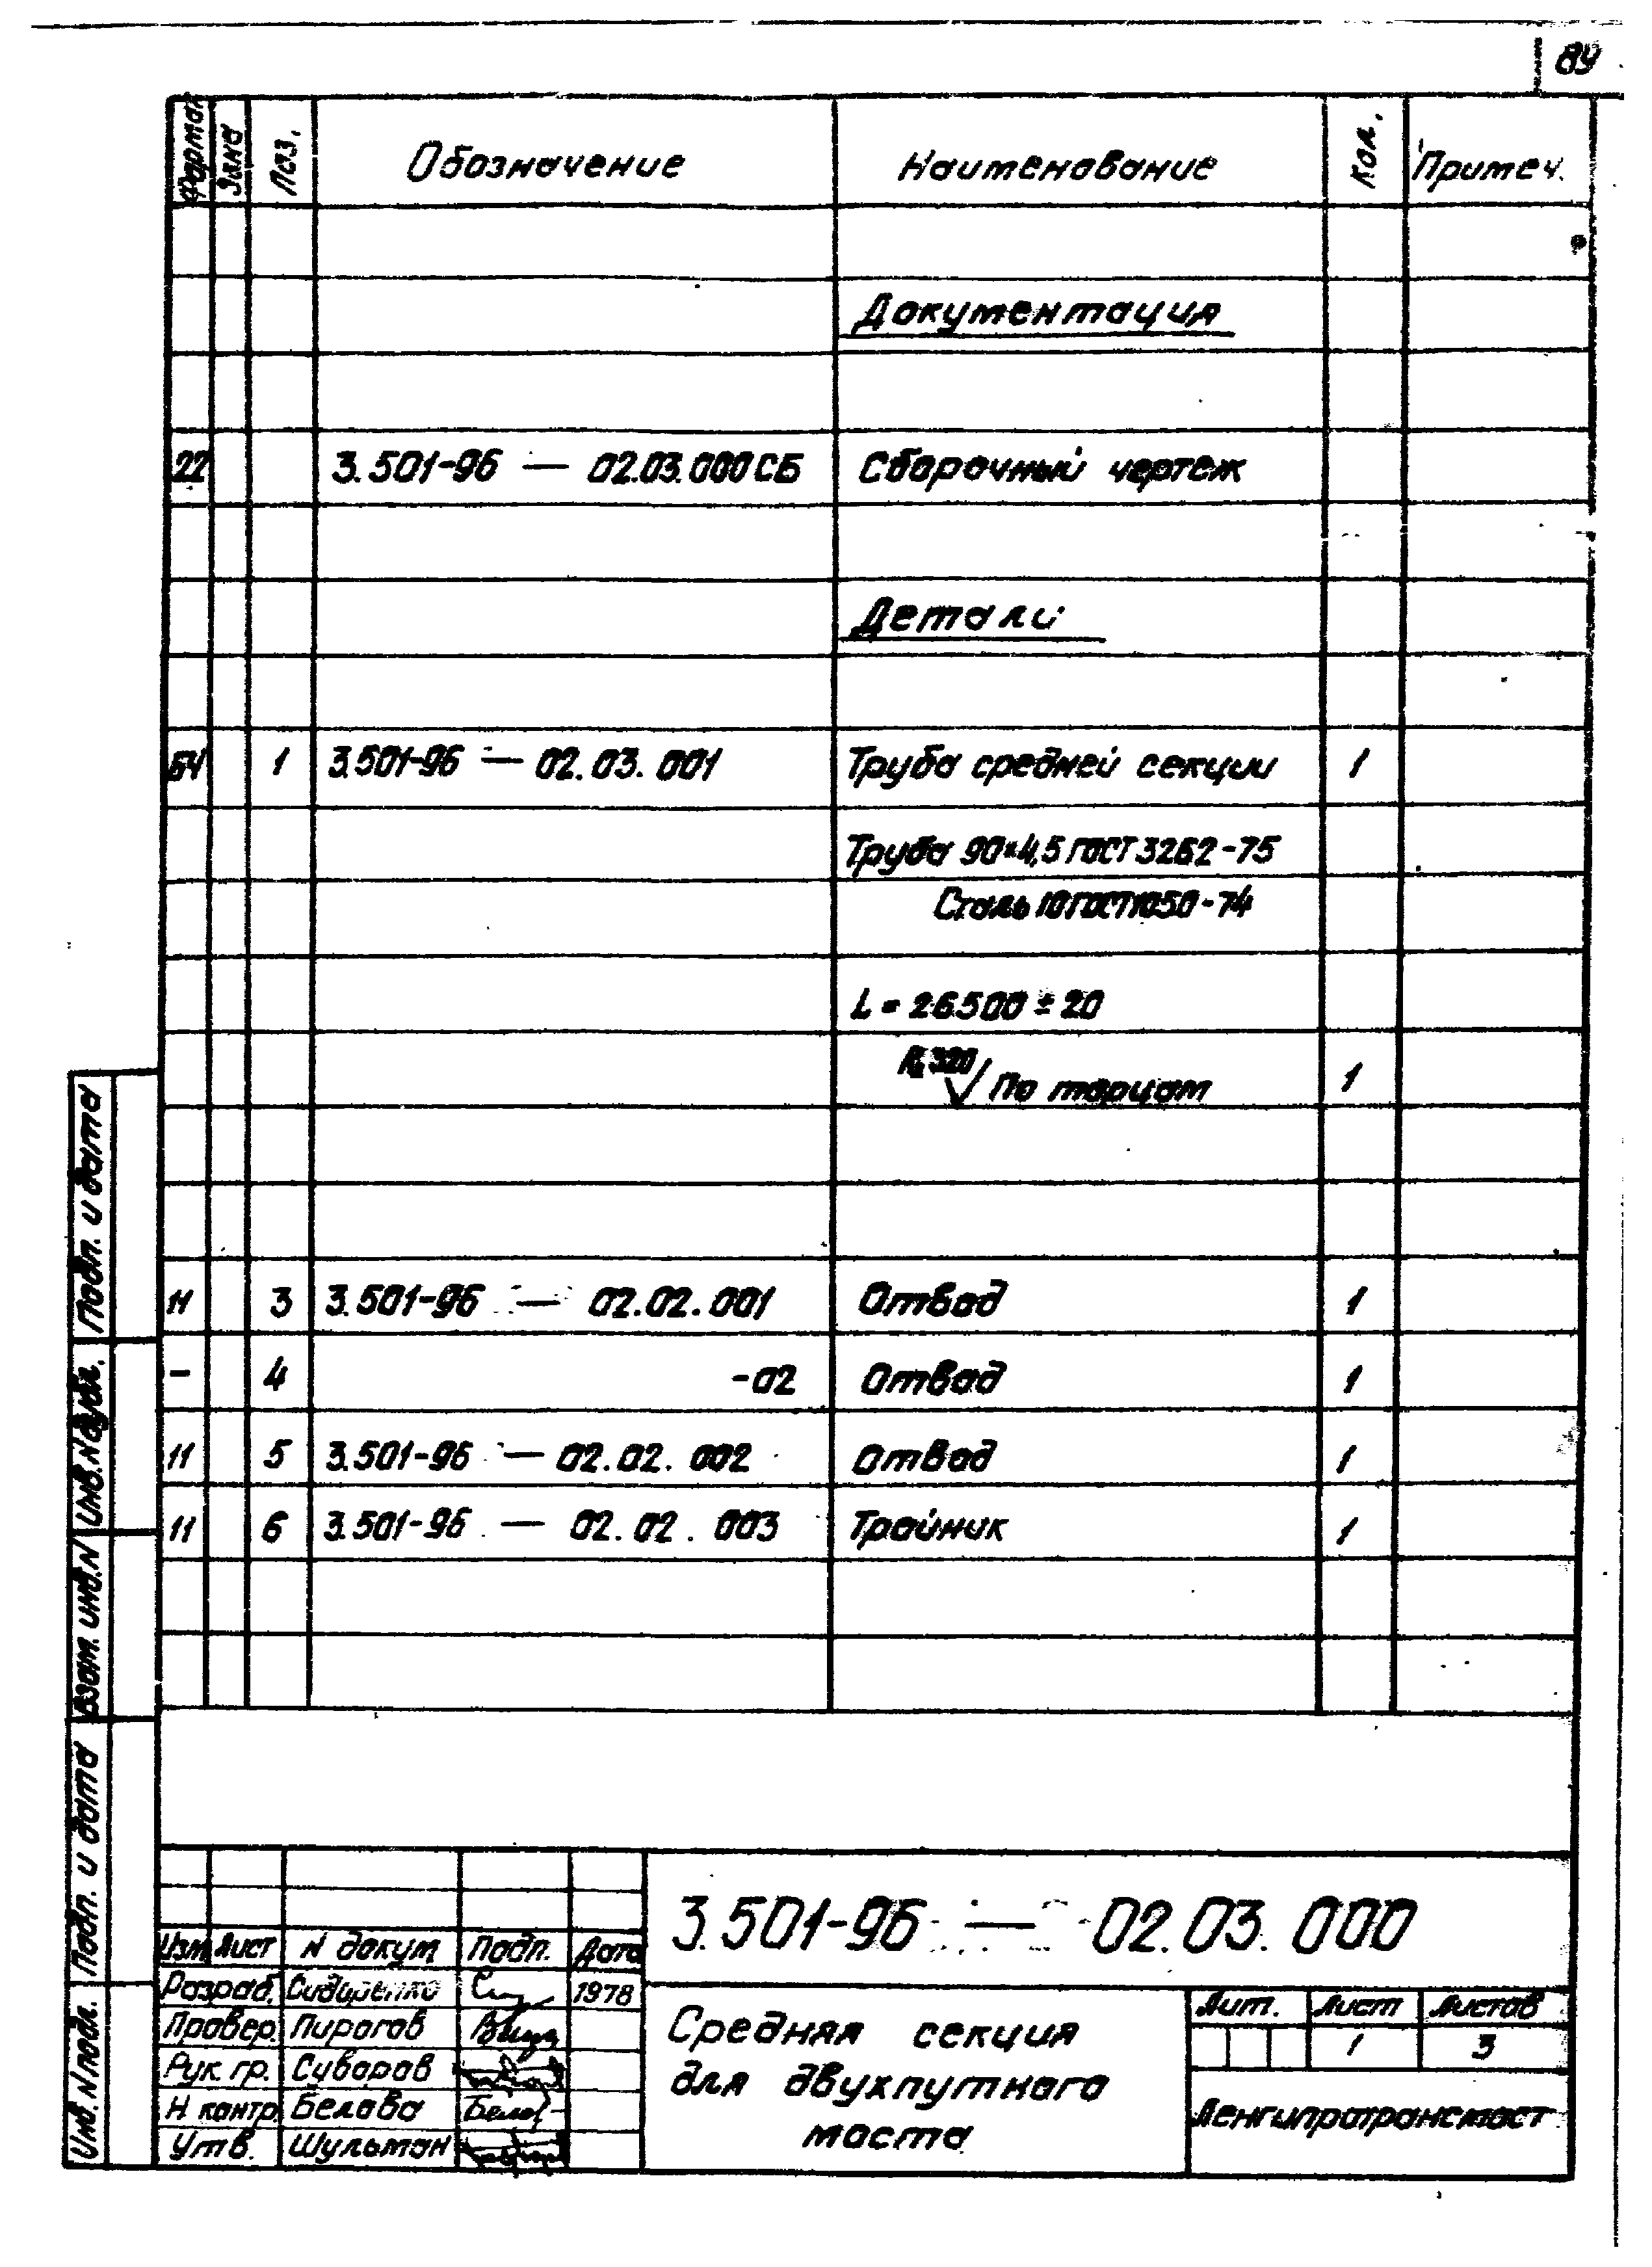 89
Формат Зона Поз. Обозначение Наименование Кол. Примеч.
Документация
22 3.501-96 — 02.03.000 СБ Сборочный чертеж
Детали
БЧ 1 3.501-96 — 02.03.001 Труба средней секции 1
Труба 90×4,5 ГОСТ 3262-75
Сталь 10 ГОСТ 1050-74
L = 26500 ± 20
Rz 320 / По торцам 1
11 3 3.501-96 — 02.02.001 Отвод 1
- 4 -02 Отвод 1
11 5 3.501-96 — 02.02.002 Отвод 1
11 6 3.501-96 — 02.02.003 Тройник 1
Подп. и дата
Инв. № дубл.
Взам. инв. N
Подп. и дата
Инв. N подл.
3.501-96 — 02.03.000
Изм. Лист N докум Подп. Дата
Разраб. Сидоренко 1978
Провер. Пирогов
Рук. гр. Суворов
Н контр. Белова
Утв. Шульман
Средняя секция
для двухпутного
моста
Лит. Лист Листов
1 3
Ленгипротрансмост